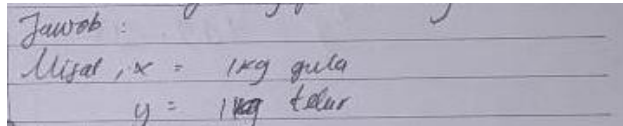 Jawab :
Misal, x = 1kg gula
y = 1kg telur